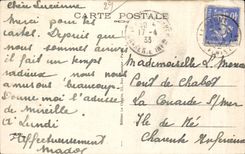 Chère Lucienne
CARTE POSTALE
Merci pour les
cartes. Depuis que
nous sommes arrivés
il fait un temps
radieux nous nous
amusons beaucoup.
Donne moi l'adresse
de Mireille
A Lundi
Affectueusement
Mador
17-4
33
Mademoiselle L.
Pont de Chabot
La Couarde S/Mer
Ile de Ré
Charente Inférieure